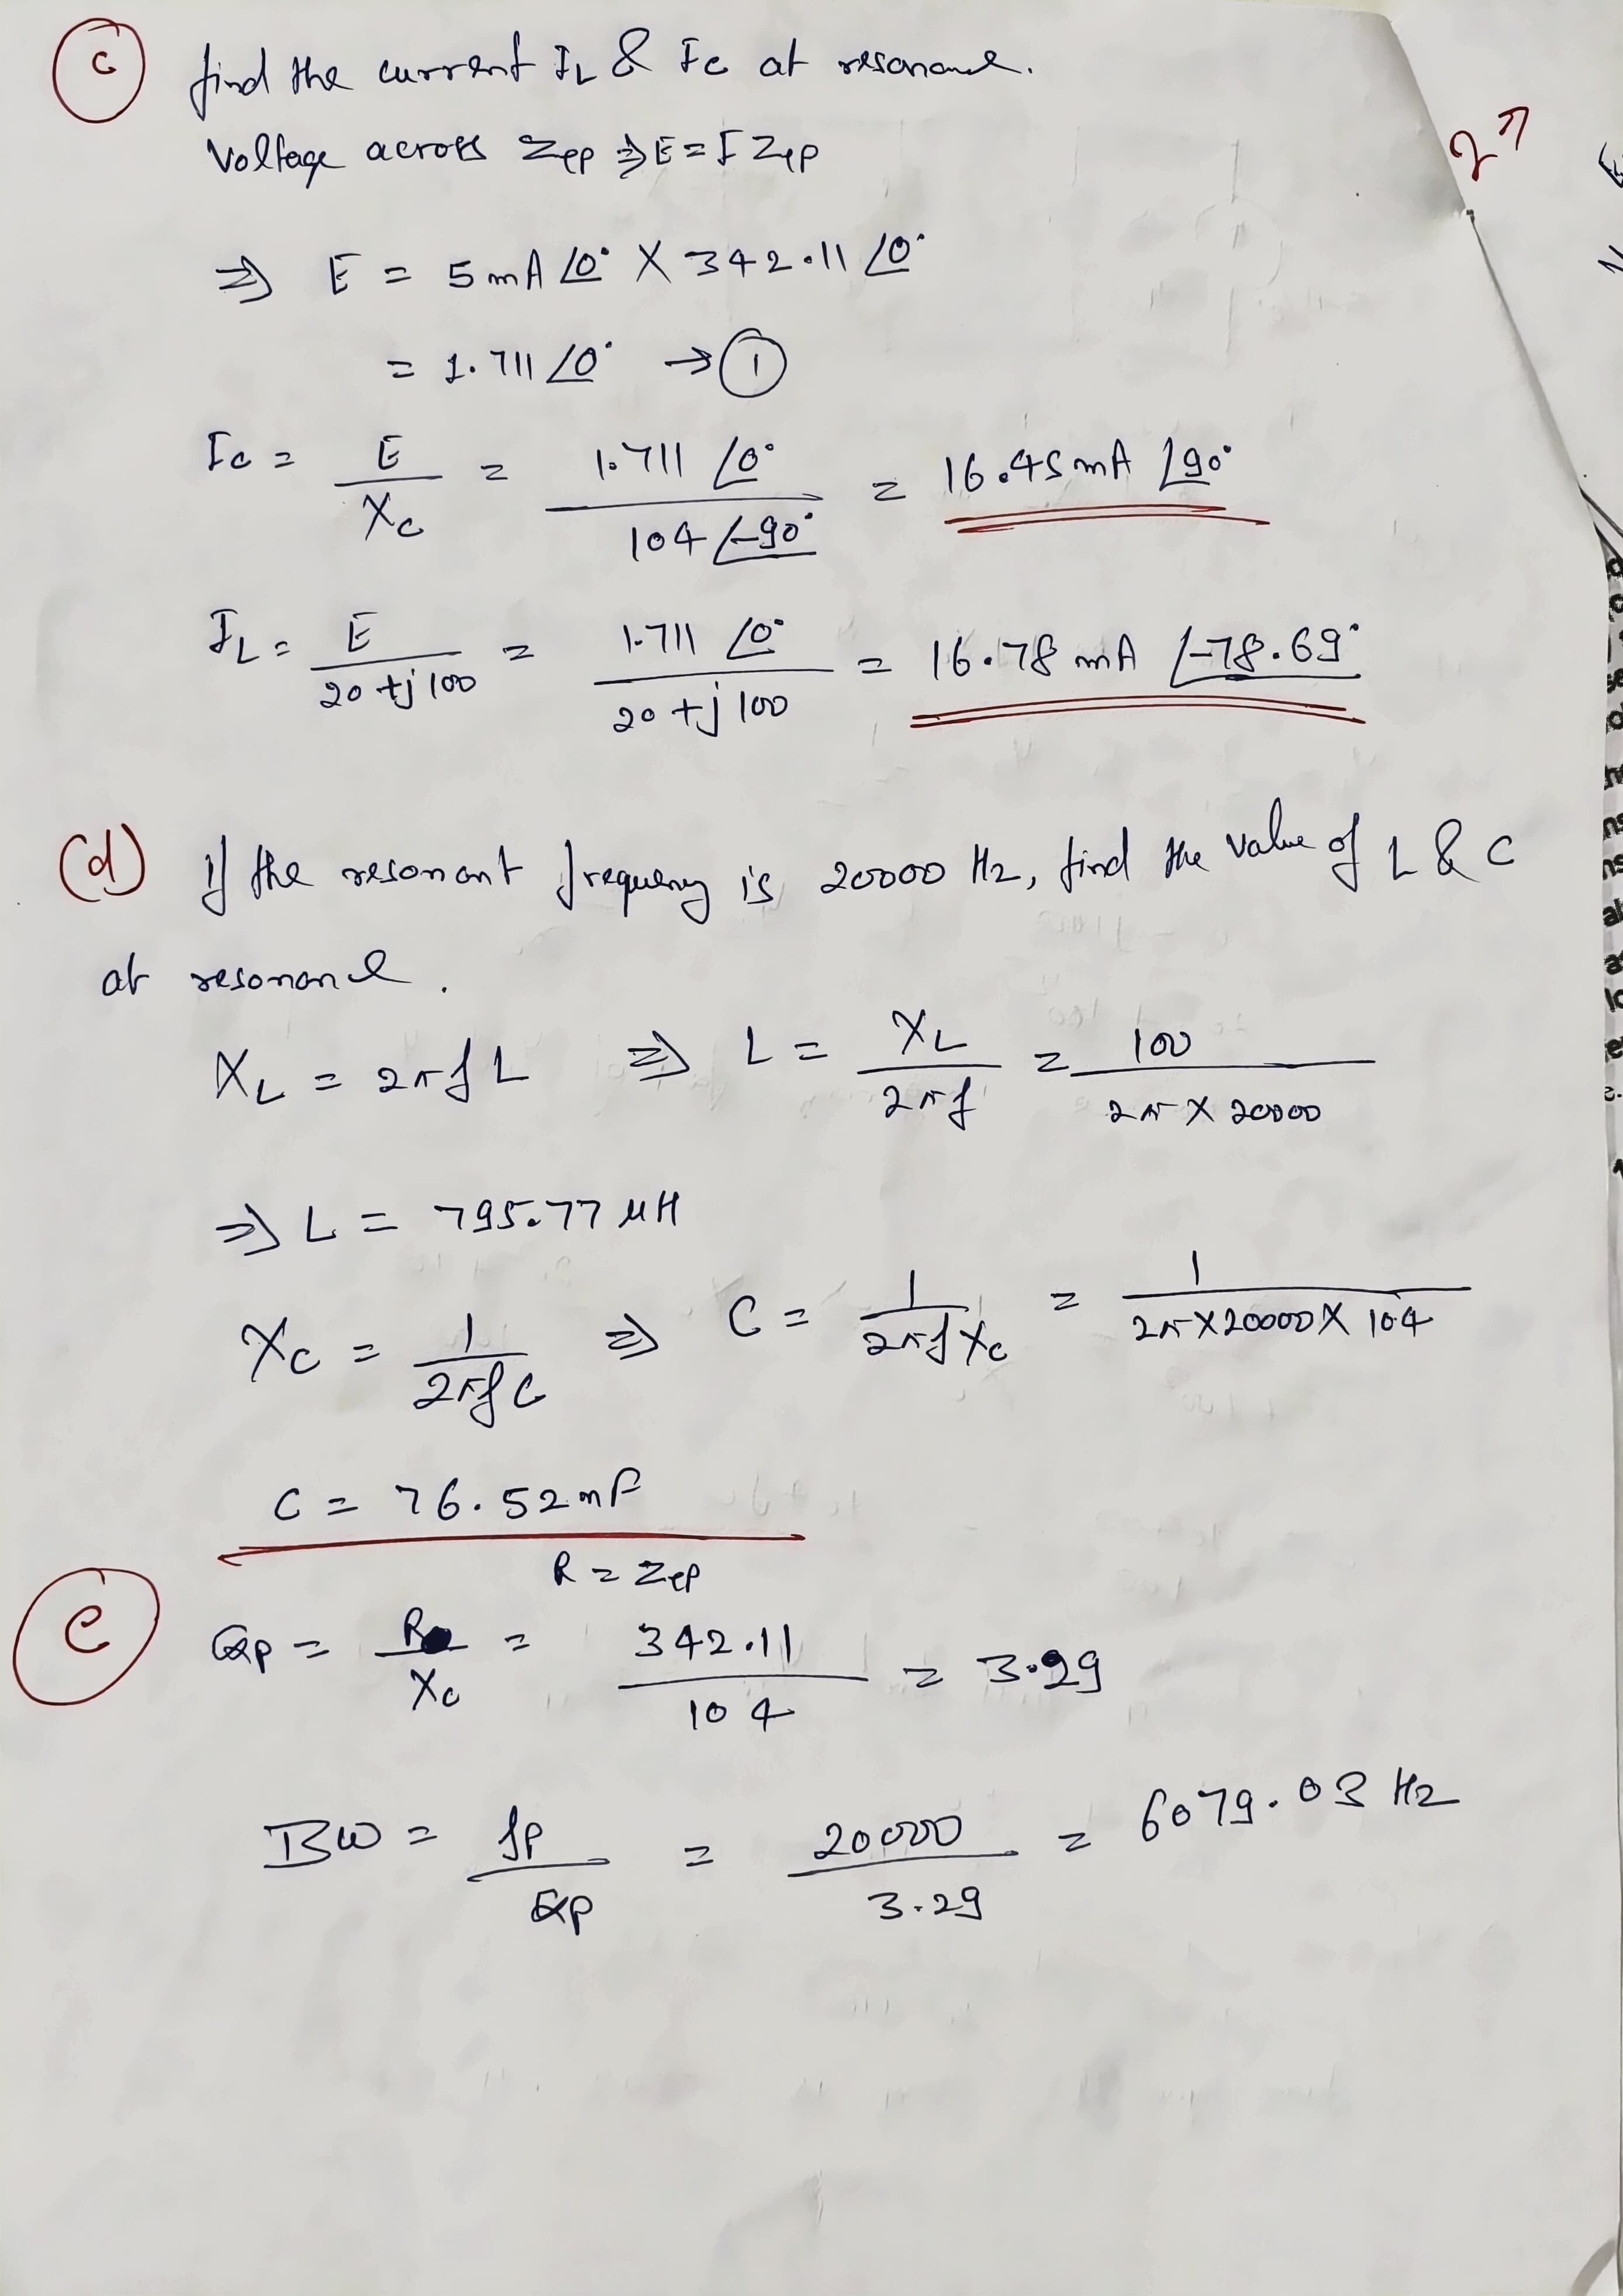 c find the current IL & Ic at resonance.
Voltage across Zep ⇒ E = I Zep
⇒ E = 5 mA ∠0° X 342.11 ∠0°
= 1.711 ∠0° → 1
Ic = E / Xc = 1.711 ∠0° / 104 ∠-90° = 16.45 mA ∠90°
IL = E / 20 + j 100 = 1.711 ∠0° / 20 + j 100 = 16.78 mA ∠-78.69°
(d) If the resonant frequency is 20000 Hz, find the value of L & C
at resonance.
XL = 2πfL ⇒ L = XL / 2πf = 100 / 2π X 20000
⇒ L = 795.77 μH
Xc = 1 / 2πfC ⇒ C = 1 / 2πfXc = 1 / 2π X 20000 X 104
C = 76.52 nF
R = Zep
e Qp = R / Xc = 342.11 / 104 = 3.29
BW = fp / Qp = 20000 / 3.29 = 6079.03 Hz